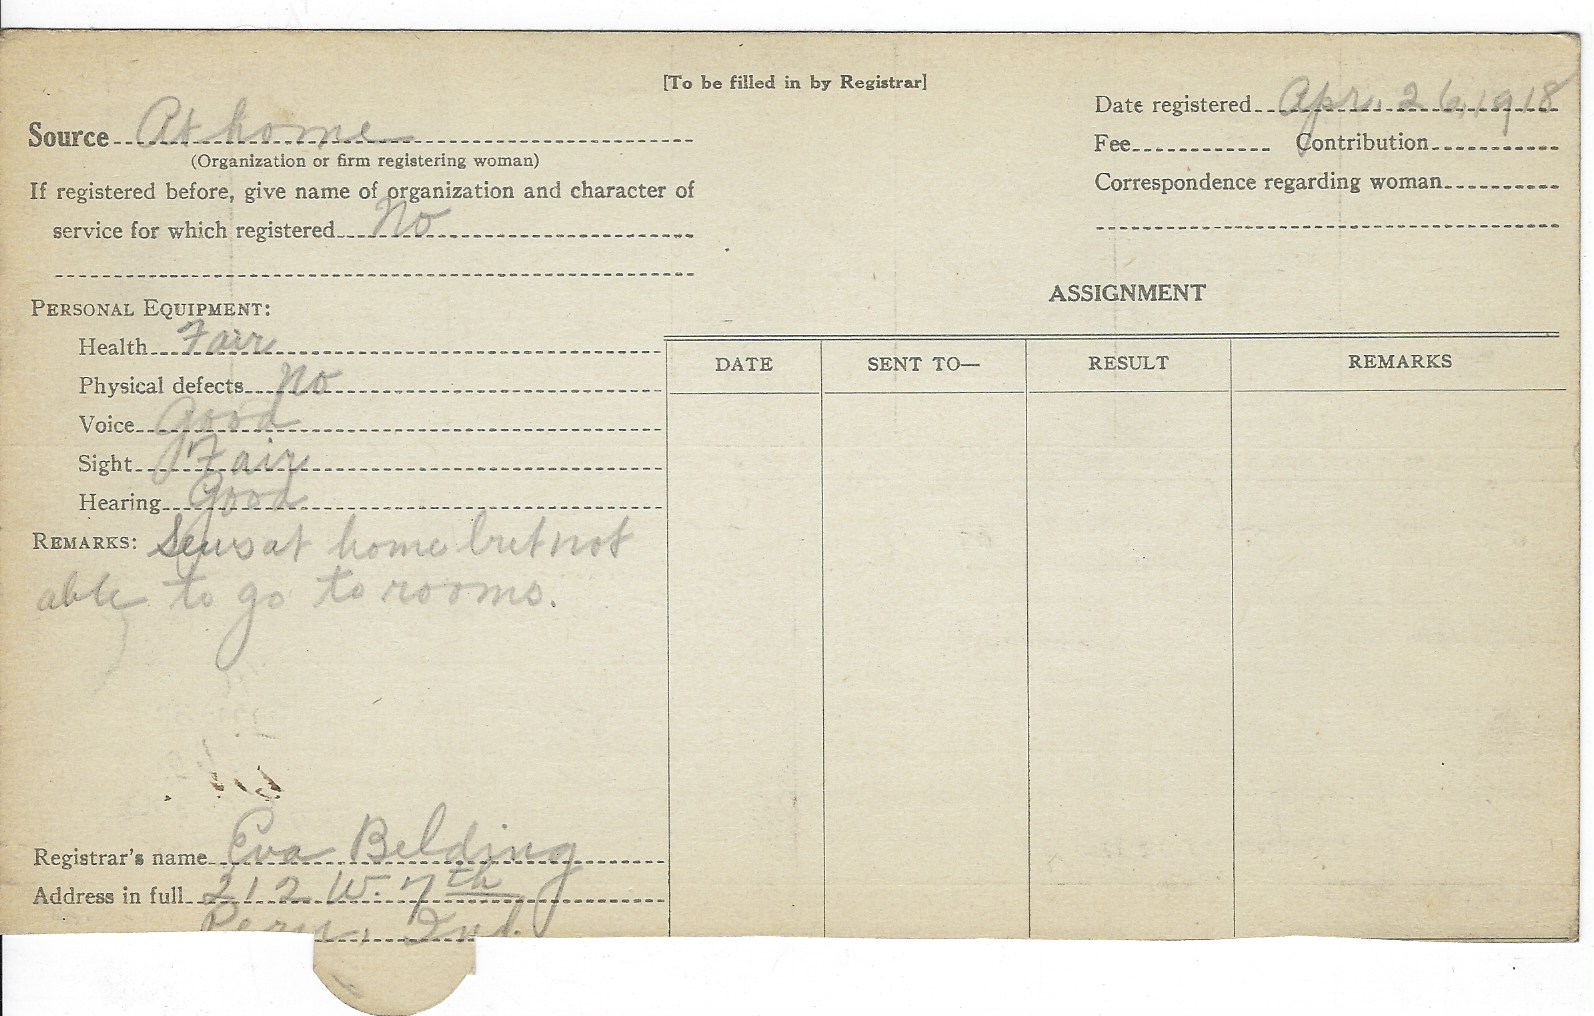 [To be filled in by Registrar]
Date registered Apr. 26, 1918
Source At home
(Organization or firm registering woman)
Fee Contribution
If registered before, give name of organization and character of
Correspondence regarding woman
service for which registered No
ASSIGNMENT
PERSONAL EQUIPMENT:
Health Fair
DATE SENT TO— RESULT REMARKS
Physical defects no
Voice good
Sight Fair
Hearing Good
REMARKS: Sews at home but not
able to go to rooms.
Registrar's name Eva Belding
Address in full 212 W. 7th
Peru, Ind.